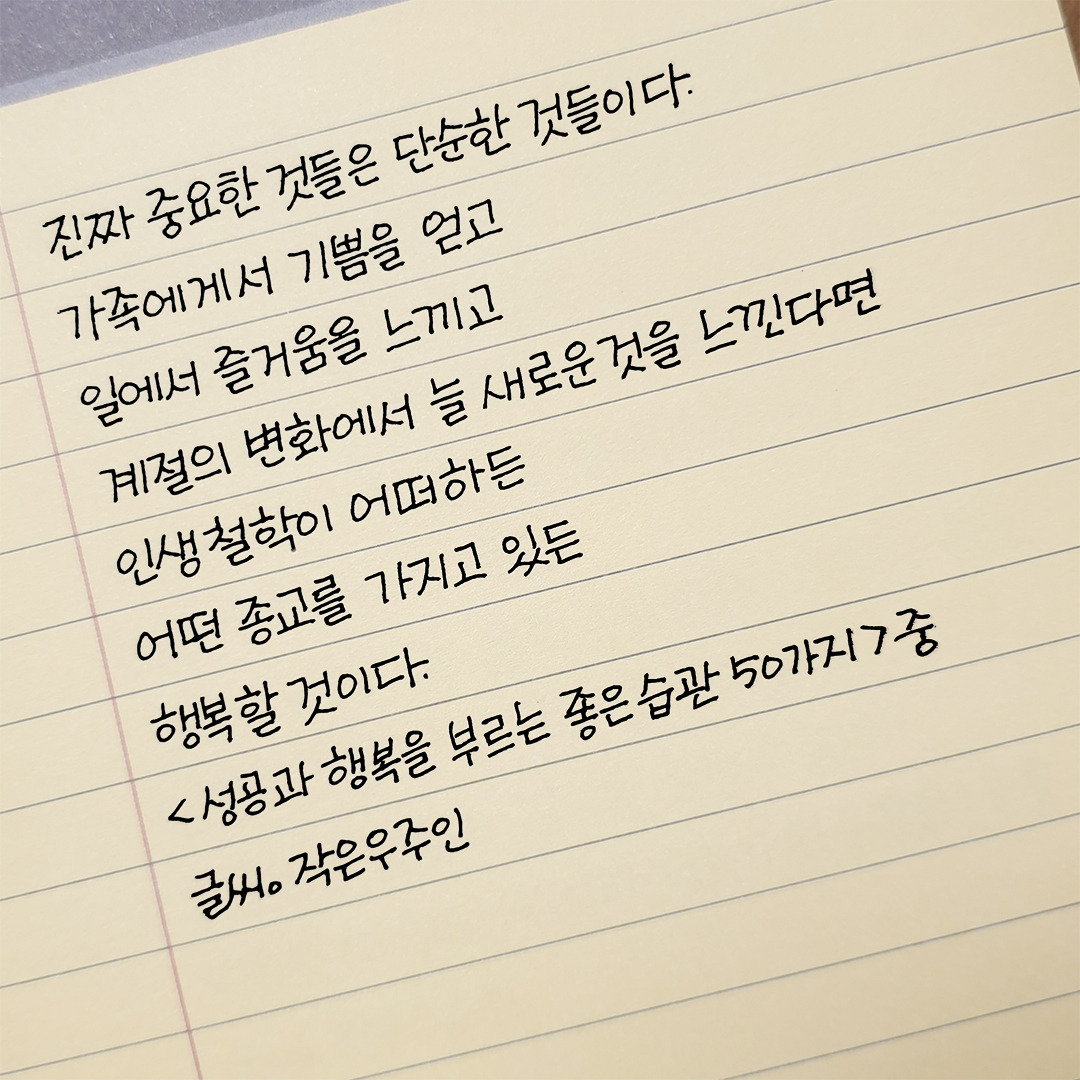 진짜 중요한 것들은 단순한 것들이다.
가족에게서 기쁨을 얻고
일에서 즐거움을 느끼고
계절의 변화에서 늘 새로운것을 느낀다면
인생철학이 어떠하든
어떤 종교를 가지고 있든
행복할 것이다.
<성공과 행복을 부르는 좋은습관 50가지> 중
글씨。작은우주인